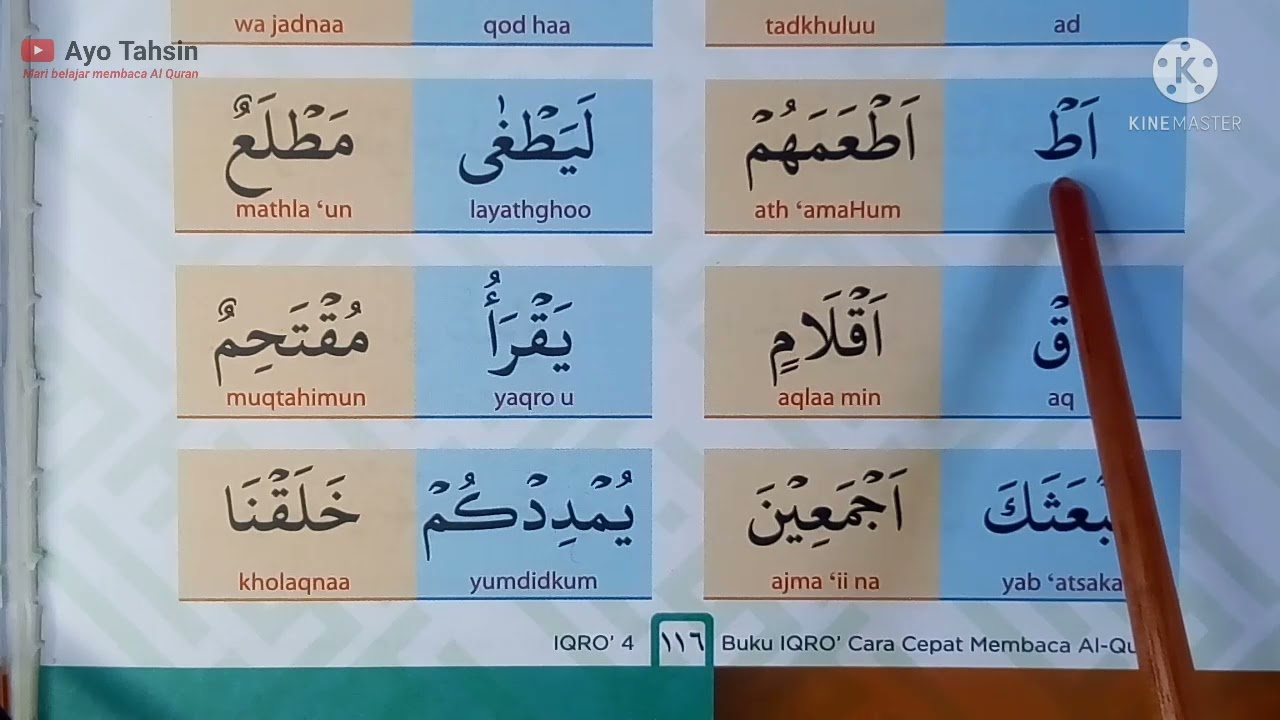 Ayo Tahsin
Mari belajar membaca Al Quran
KINEMASTER
ad tadkhuluu qod haa wa jadnaa
اَطْ اَطْعَمَهُمْ لَيَطْغٰى مَطْلَعٌ
ath ‘amaHum layathghoo mathla ‘un
قْ اَقْلَامٍ يَقْرَأُ مُقْتَحِمٌ
aq aqlaa min yaqro u muqtahimun
اَجْمَعِيْنَ يُمْدِدْكُمْ خَلَقْنَا
yab ‘atsaka ajma ‘ii na yumdidkum kholaqnaa
IQRO’ 4 ١١٦ Buku IQRO’ Cara Cepat Membaca